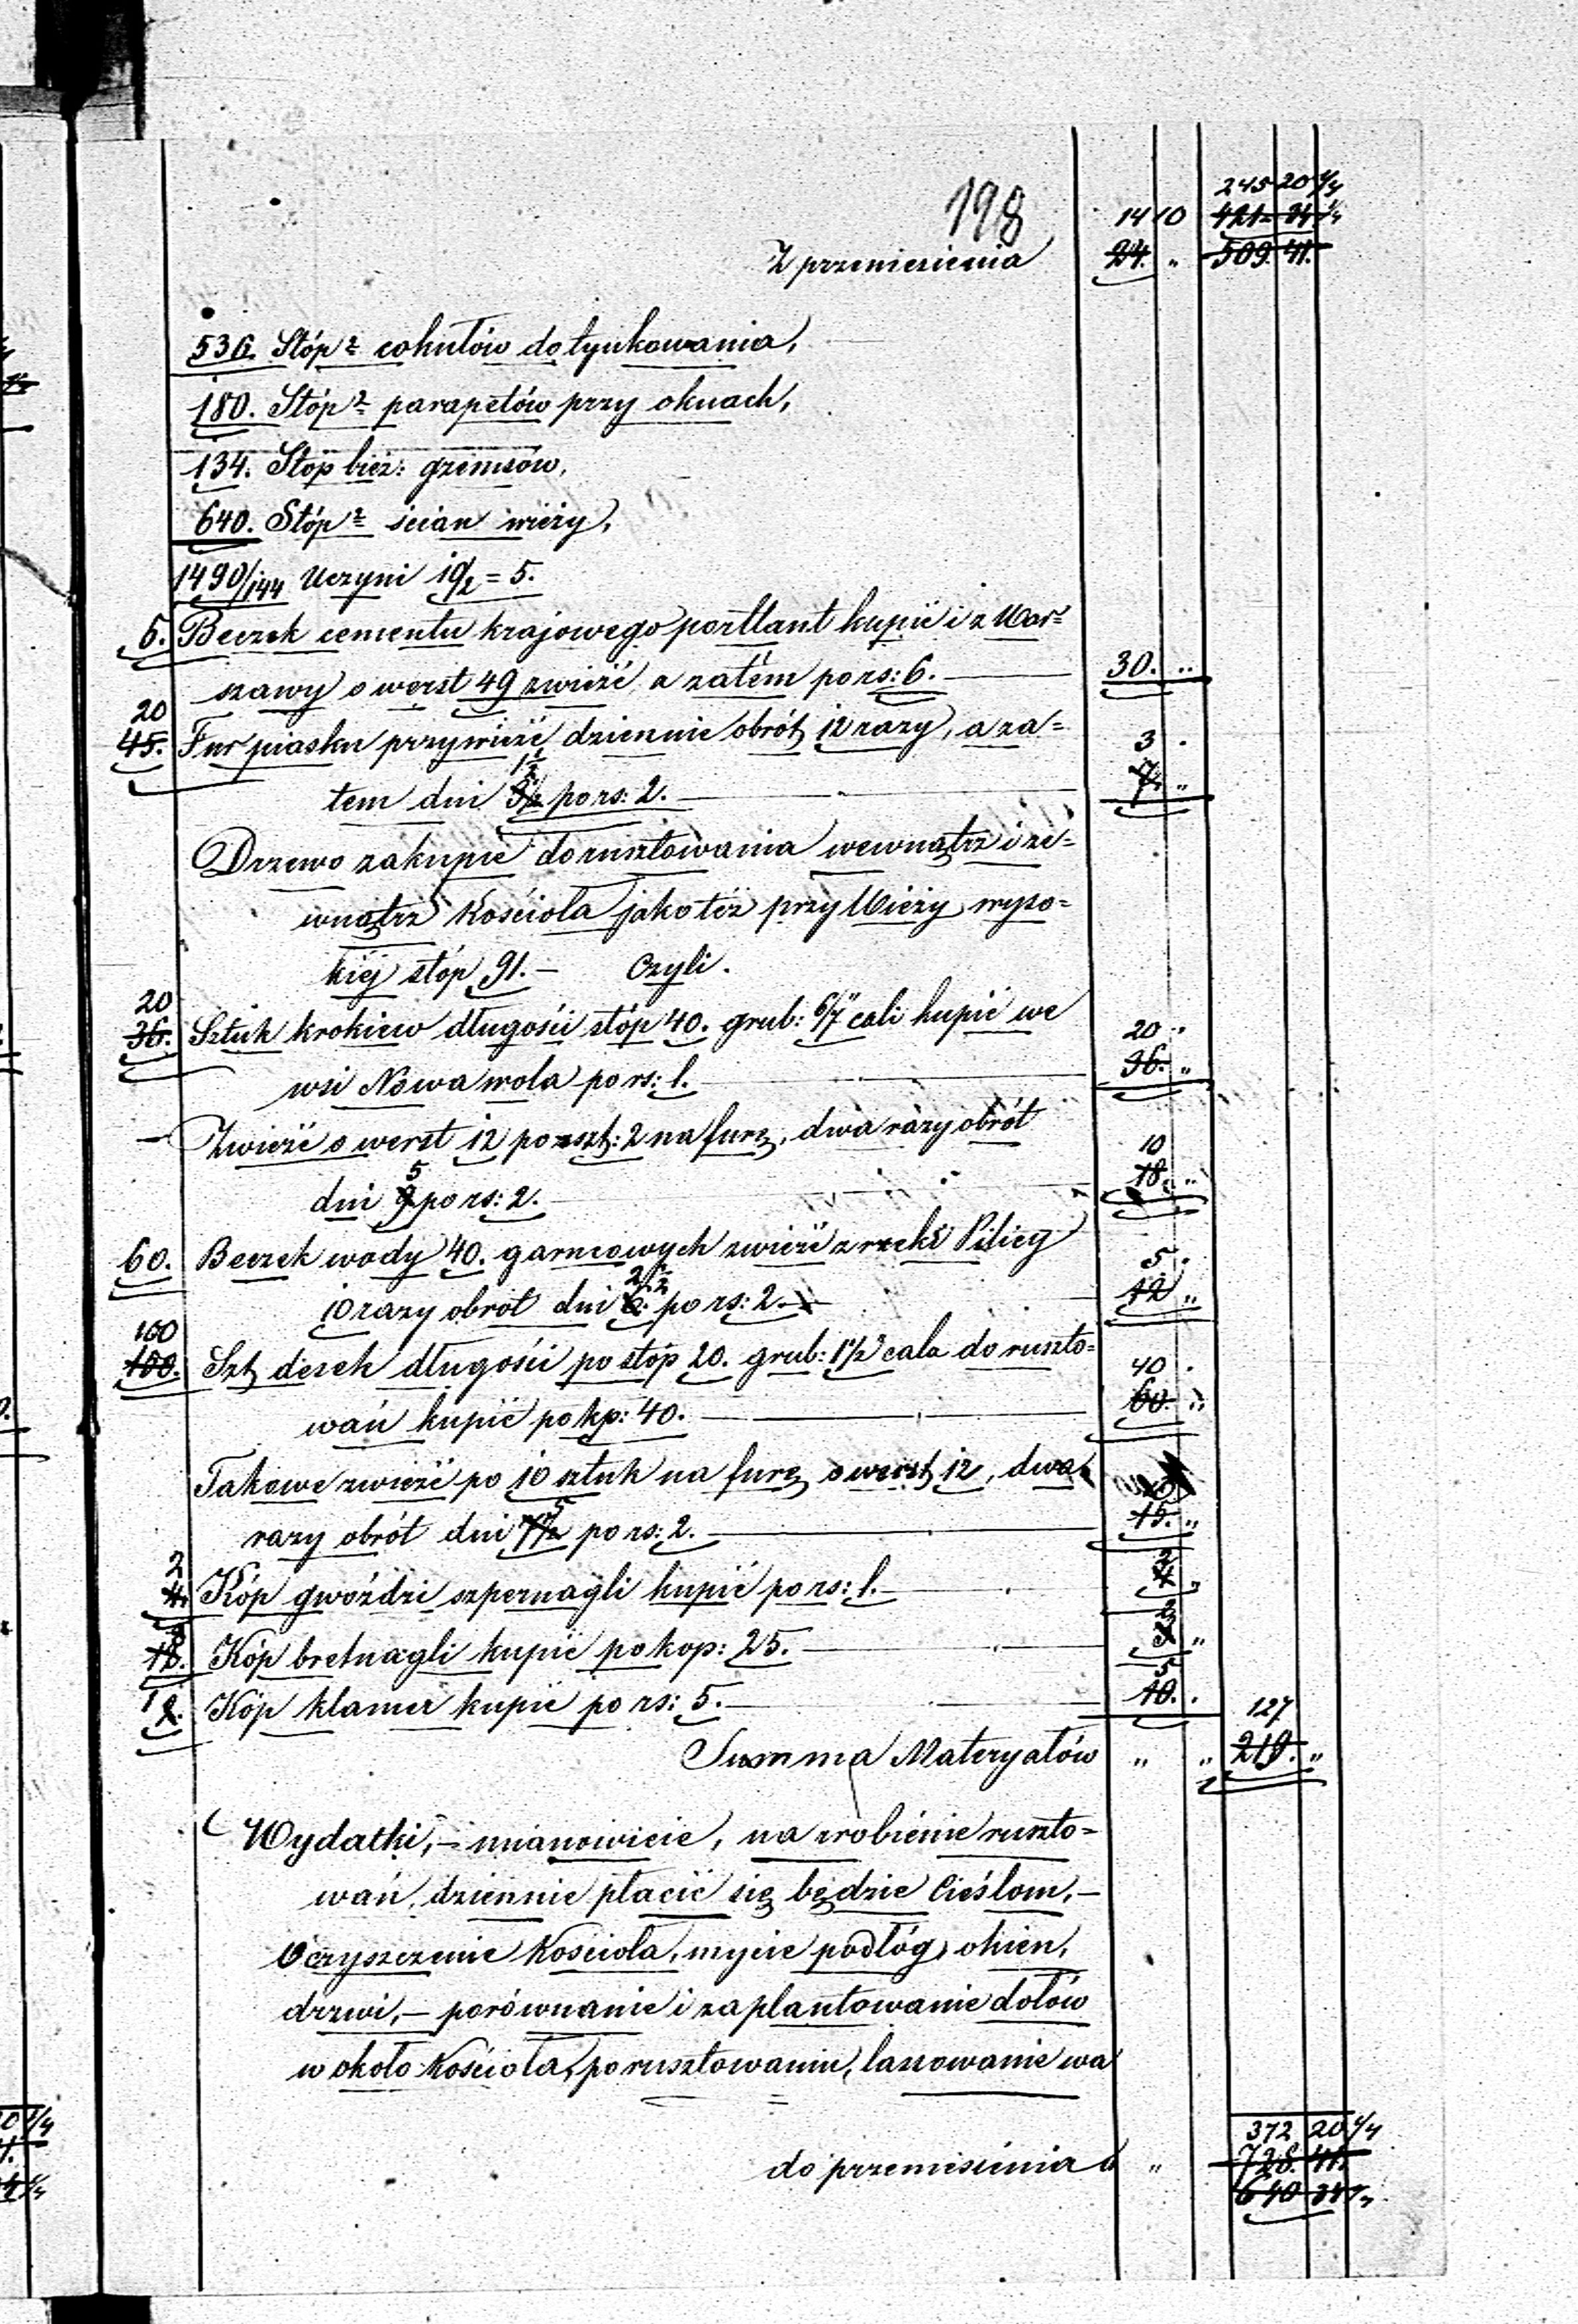 198
245 20 1/4
14 10 421 34 1/4
Z przeniesienia 24. „ 509. 41.
536. Stóp² cokułów do tynkowania,
180. Stóp² parapetów przy oknach,
134. Stóp bież: gzemsów,
640. Stóp² ścian wieży,
1490/144 Uczyni 10/2 = 5.
5. Beczek cementu krajowego portlant kupić i z War=
szawy o werst 49 zwieźć, a zatém po rs: 6. 30. „
20
45. Fur piasku przywieźć, dziennie obrót 12 razy, a za= 3 .
1 1/2
tem dni 3 1/2 po rs: 2. 7. „
Drzewo zakupić do rusztowania wewnątrz i ze=
wnątrz Kościoła jako też przy Wieży wyso=
kiéj stóp 91. — Czyli.
20
36. Sztuk krokiew długości stóp 40. grub: 6/7" cali kupić we 20 „
wsi Nowa wola po rs: 1. 36. „
— Zwieźć o werst 12 po szt: 2 na furę, dwa razy obrót 10
5
dni 9 po rs: 2. 18. „
60. Beczek wody 40. garncowych zwieźć z rzeki Pilicy 5. .
2 1/2
10 razy obrót dni 6. po rs: 2. 12 „
100
100. Szt desek długości po stóp 20. grub: 1 1/2 cala do ruszto= 40 .
wań kupić po kp: 40. 60. „
Takowe zwieźć po 10 sztuk na furę o werst 12, dwa
5
razy obrót dni 7 1/2 po rs: 2. 15. „
2 2
4. Kóp gwoździ szpernagli kupić po rs: 1. 4 „
18. Kóp bretnagli kupić po kop: 25. „
5
1 2. Kóp klamer kupić po rs: 5. 10. .
127
Summa Materyałów „ „ 219. „
Wydatki, — mianowicie, na zrobienie ruszto=
wań, dziennie płacić się będzie Cieślom, —
Oczyszczenie Kościoła, mycie podłóg, okien,
drzwi, — porównanie i zaplantowanie dołów
w około Kościoła, po rusztowaniu, lassowanie wa
372 20 1/4
do przeniesienia „ 728. 41.
640